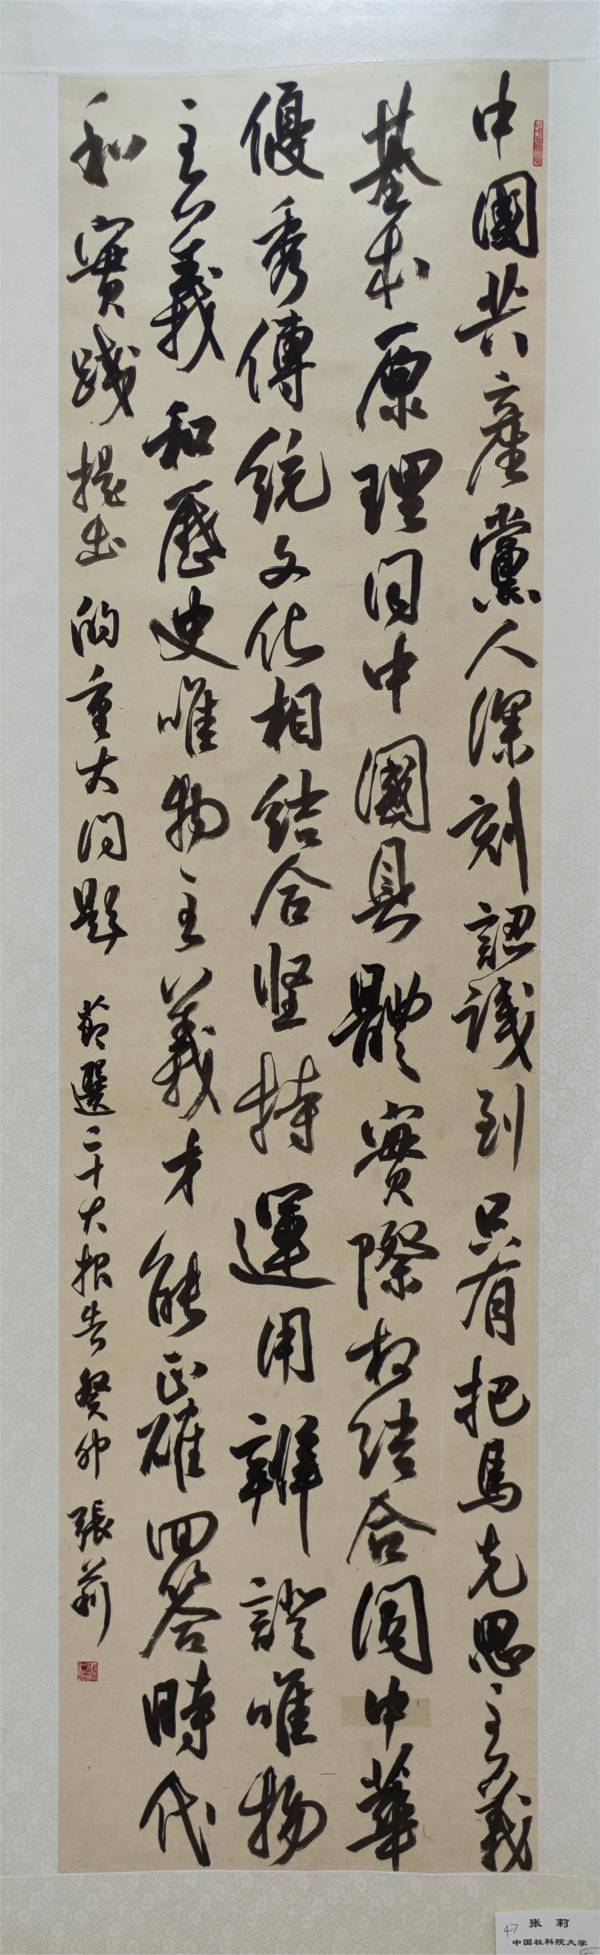 中國共產黨人深刻認識到只有把馬克思主義
基本原理同中國具體實際相結合同中華
優秀傳統文化相結合堅持運用辯證唯物
主義和歷史唯物主義才能正確回答時代
和實踐提出的重大問題
節選二十大報告癸卯張莉
47 张 莉
中国社科院大学